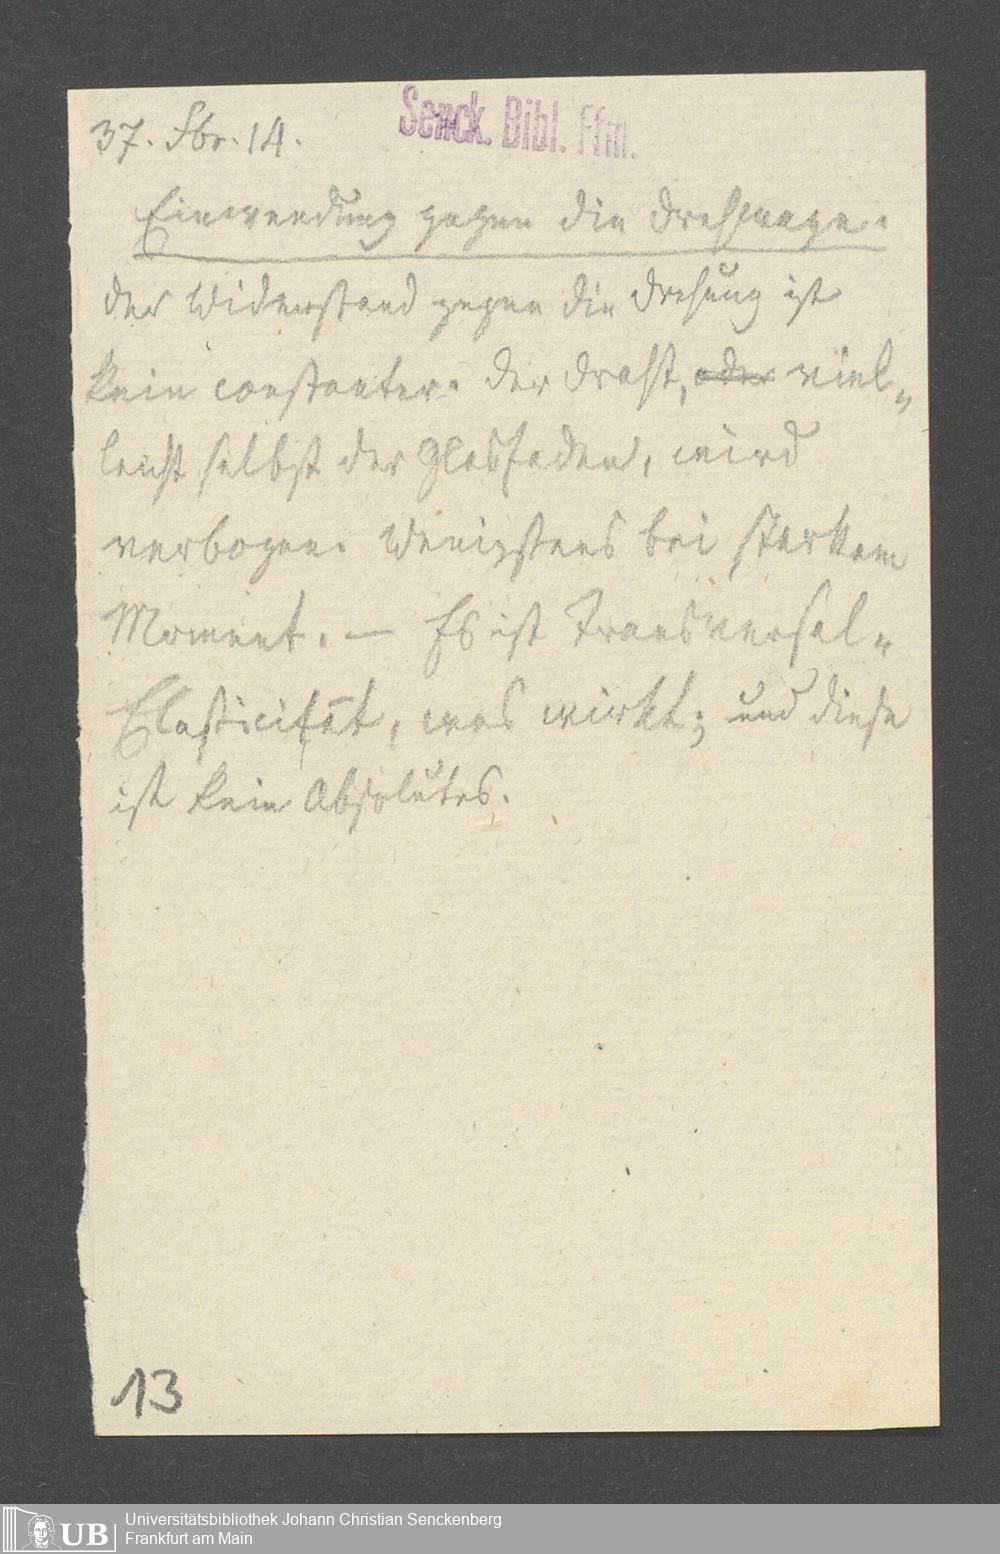 37. Fbr. 14.
Senck. Bibl. Ffm.
Einwendung gegen die Drehwage.
Der Widerstand gegen die Drehung ist
kein constanter. Der Draht, oder viel„
leicht selbst der Glasfaden, wird
verbogen. Wenigstens bei starkem
Moment. — Es ist Transversal„
Elasticität, was wirkt; und diese
ist kein Absolutes.
13
UB
Universitätsbibliothek Johann Christian Senckenberg
Frankfurt am Main